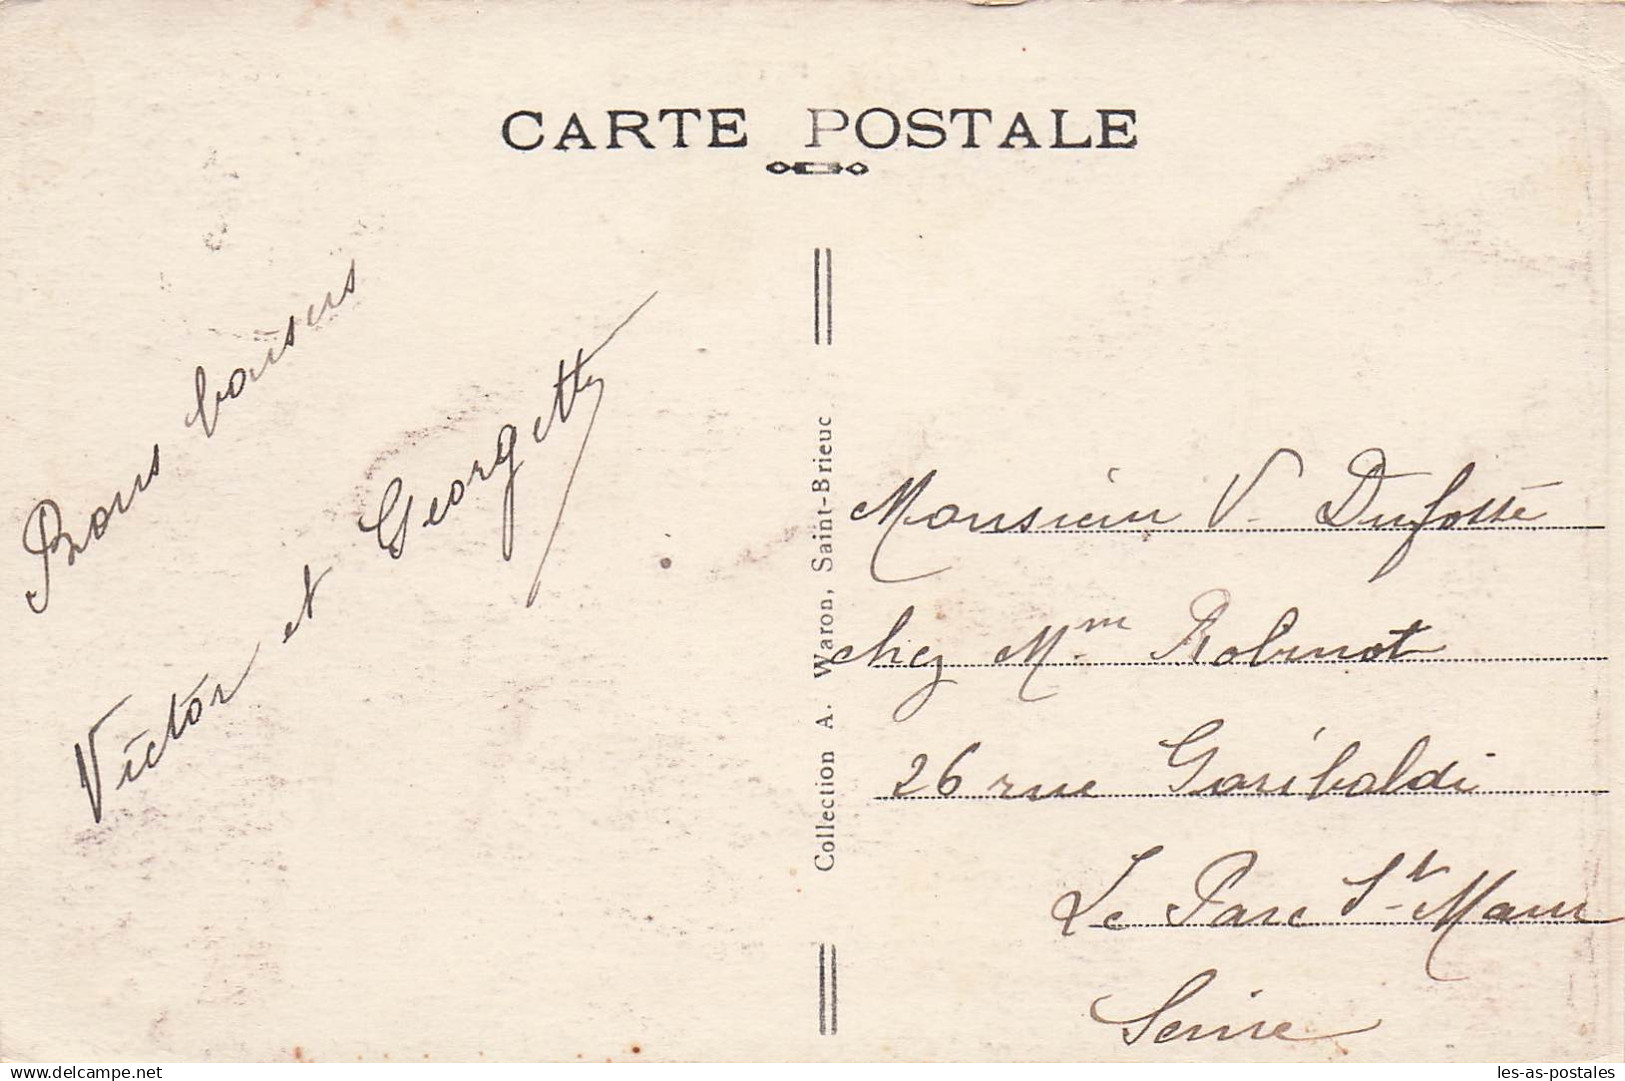 CARTE POSTALE
Bons baisers
Victor et Georgette
Collection A. Waron, Saint-Brieuc
Monsieur V. Dufossé
chez Mm Robinot
26 rue Garibaldi
Le Parc St-Maur
Seine
delcampe.net
les-as-postales